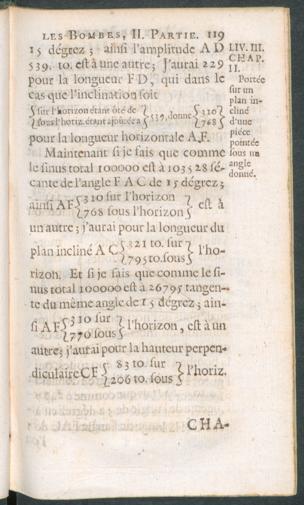 LES BOMBES, II. PARTIE. 119
15 dégrez; ainsi l'amplitude A D
539. to. est à une autre; J'aurai 229
pour la longueur F D, qui dans le
cas que l'inclination soit
{sur l'horizon étant ôté de
{sous l'horiz. étant ajoûtée à} 539. donne {310}
{768}
pour la longueur horizontale A F.
Maintenant si je fais que comme
le sinus total 100000 est à 103528 sé-
cante de l'angle F A C de 15 dégrez;
ainsi AF {310 sur l'horizon
{768 sous l'horizon} est à
un autre; j'aurai pour la longueur du
plan incliné A C {321 to. sur
{795 to. sous} l'ho-
rizon. Et si je fais que comme le si-
nus total 100000 est à 26795 tangen-
te du même angle de 15 dégrez; ain-
si AF {310 sur
{770 sous} l'horizon, est à un
autre; j'aurai pour la hauteur perpen-
diculaire CF {83 to. sur
{206 to. sous} l'horiz.
CHA-
LIV. III.
CHAP.
II.
Portée
sur un
plan in-
cliné
d'une
piéce
pointée
sous un
angle
donné.